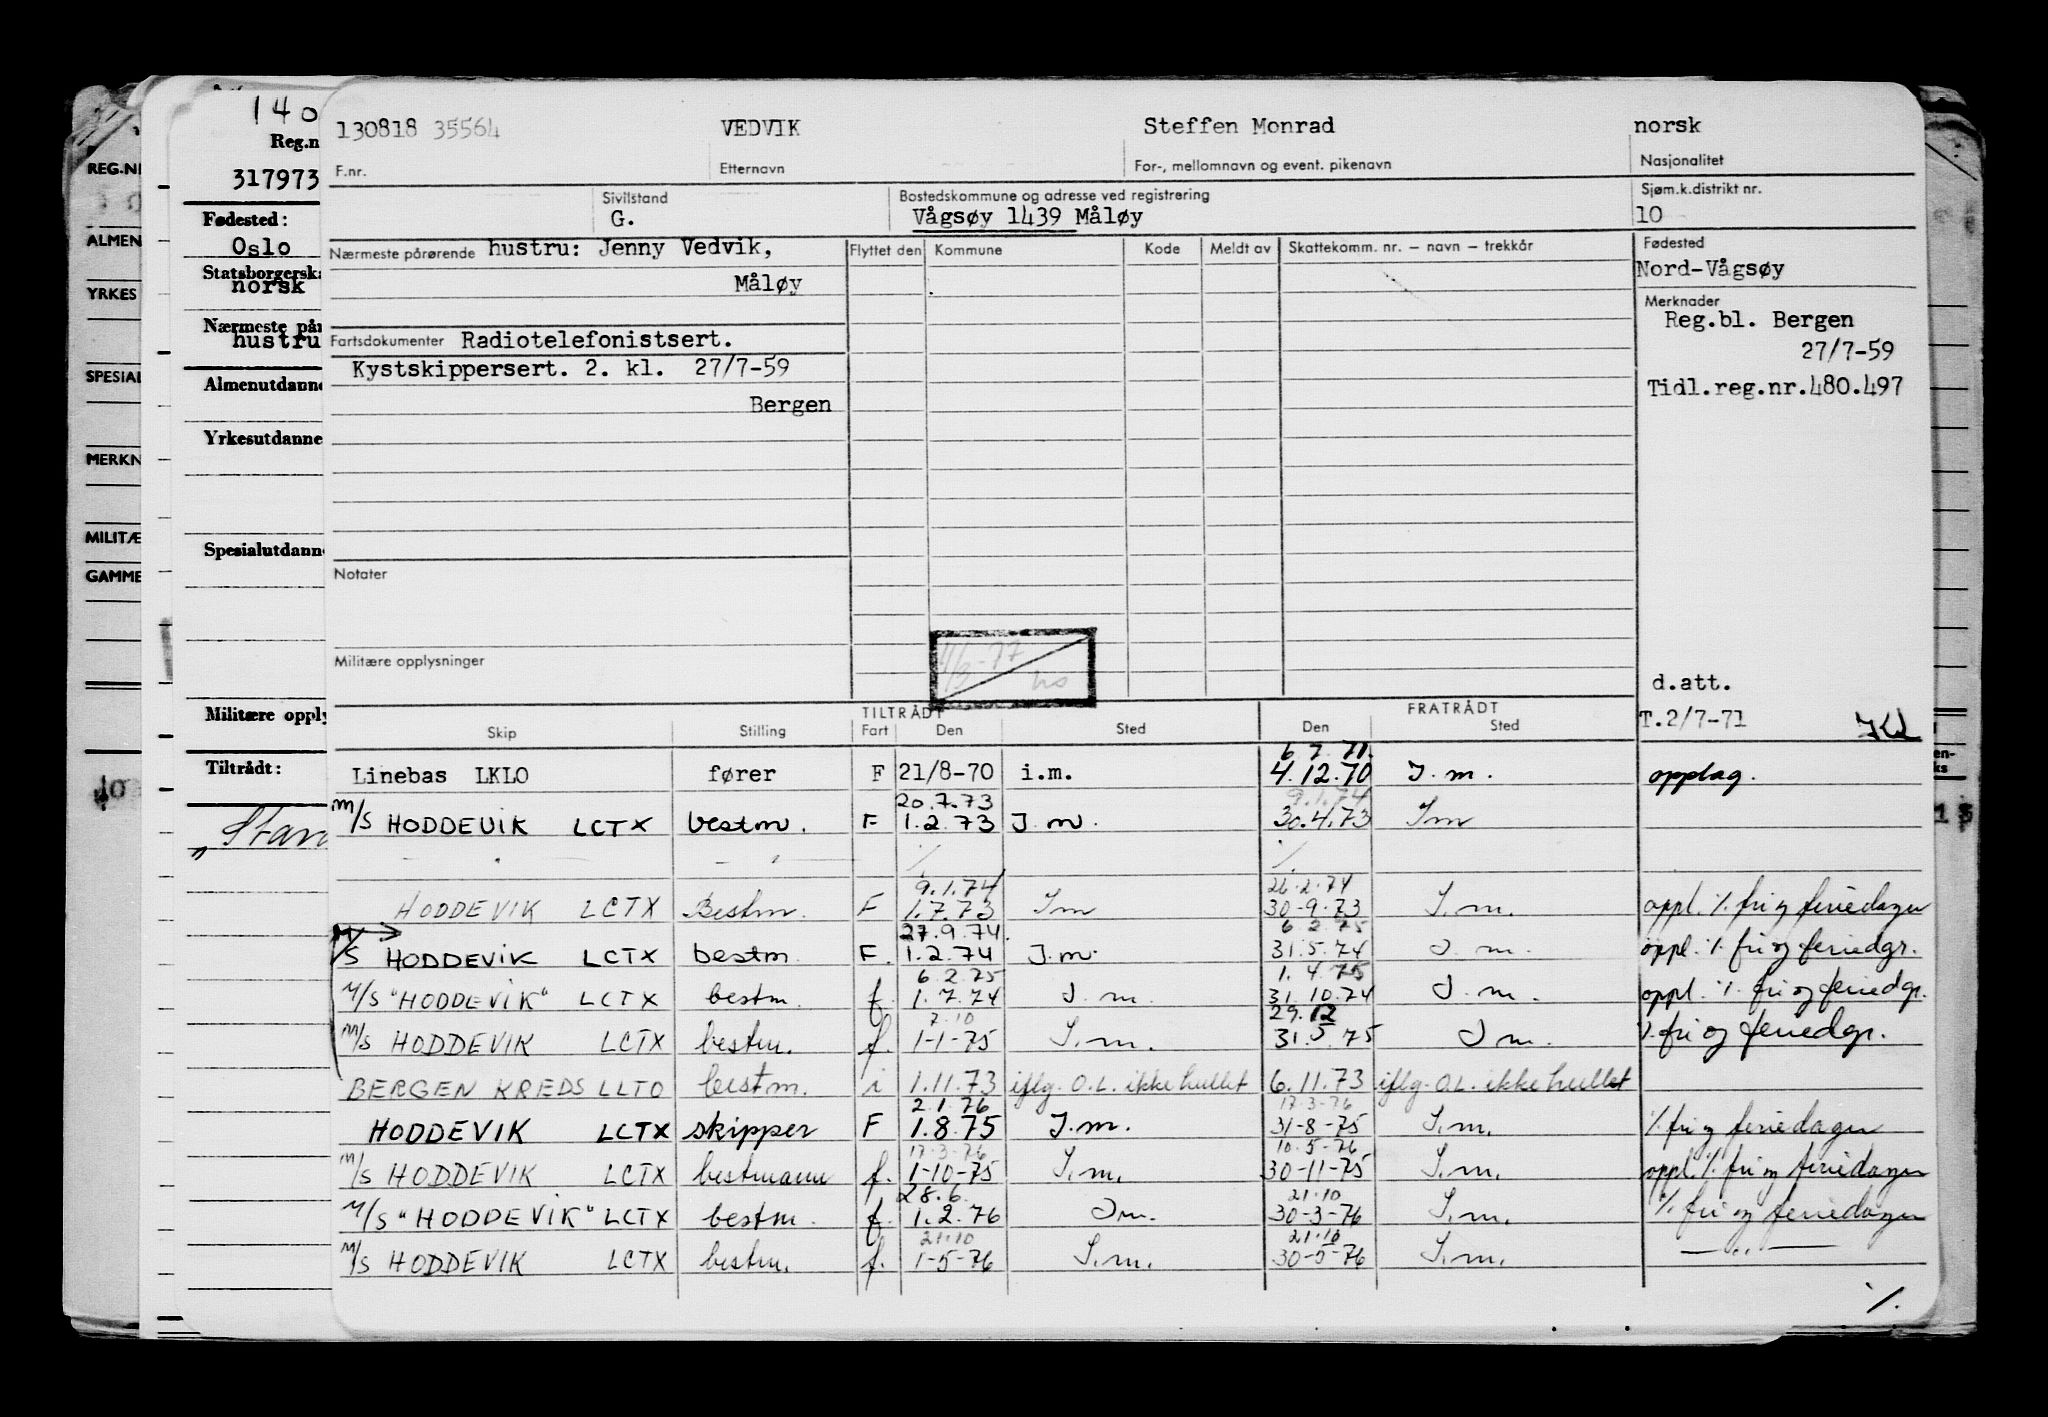 130818 35564 VEDVIK Steffen Monrad norsk
F.nr. Etternavn For-, mellomnavn og event. pikenavn Nasjonalitet
Sivilstand Bostedskommune og adresse ved registrering Sjøm.k.distrikt nr.
G. Vågsøy 1439 Måløy 10
Nærmeste pårørende hustru: Jenny Vedvik, Flyttet den Kommune Kode Meldt av Skattekomm. nr. – navn – trekkår Fødested
Måløy Nord-Vågsøy
Merknader
Fartsdokumenter Radiotelefonistsert. Reg.bl. Bergen
Kystskippersert. 2. kl. 27/7-59 27/7-59
Bergen Tidl.reg.nr.480.497
Notater
Militære opplysninger
1/3-77
d.att.
T.2/7-71
TILTRÅDT FRATRÅDT
Skip Stilling Fart Den Sted Den Sted
6.7.71.
Linebas LKLO fører F 21/8-70 i.m. 4.12.70 I.m. opplag.
20.7.73 9.1.74
M/S HODDEVIK LCTX bestm. F 1.2.73 I.m. 30.4.73 Im
- " - - " - ./. ./.
9.1.74 26.2.74
HODDEVIK LCTX Bestm. F 1.7.73 Im 30-9-73 I.m. oppl. ./. fri og feriedager
27.9.74. 6.2.75
M/S HODDEVIK LCTX bestm. F. 1.2.74 I.m. 31.5.74 I.m. oppl. ./. fri og feriedgr.
6.2.75 1.4.75
M/S "HODDEVIK" LCTX bestm. f. 1.7.74 I.m. 31.10.74 I.m. oppl. ./. fri og feriedgr.
7.10 29.12
M/S HODDEVIK LCTX bestm. f. 1-1-75 I.m. 31.5.75 I m. ./. fri og feriedgr.
BERGEN KREDS LLTO bestm. i 1.11.73 iflg. O.L. ikke hullet 6.11.73 iflg. O.L. ikke hullet
2.1.76 17-3-76
HODDEVIK LCTX skipper F 1.8.75 I.m. 31-8-75 I.m. ./. fri og feriedager
17-3-76 10-5-76
M/S HODDEVIK LCTX bestmann f. 1-10-75 I.m. 30-11-75 I.m. oppl. ./. fri og feriedager
28.6. 21.10
M/S "HODDEVIK" LCTX bestm. f. 1.2.76 Im. 30-3-76 I.m. ./. fri og feriedager
21.10 21.10
M/S HODDEVIK LCTX bestm. f. 1-5-76 I.m. 30-5-76 I.m. — " —
./.
140
Reg.n
317973
Fødested:
Oslo
Statsborgerska
norsk
Nærmeste pår
hustru
Almenutdanne
Yrkesutdanne
Spesialutdann
Militære opply
Tiltrådt:
"Stan
REG.NR
ALMEN
YRKES
SPESIAL
MERKN
MILITÆ
GAMME